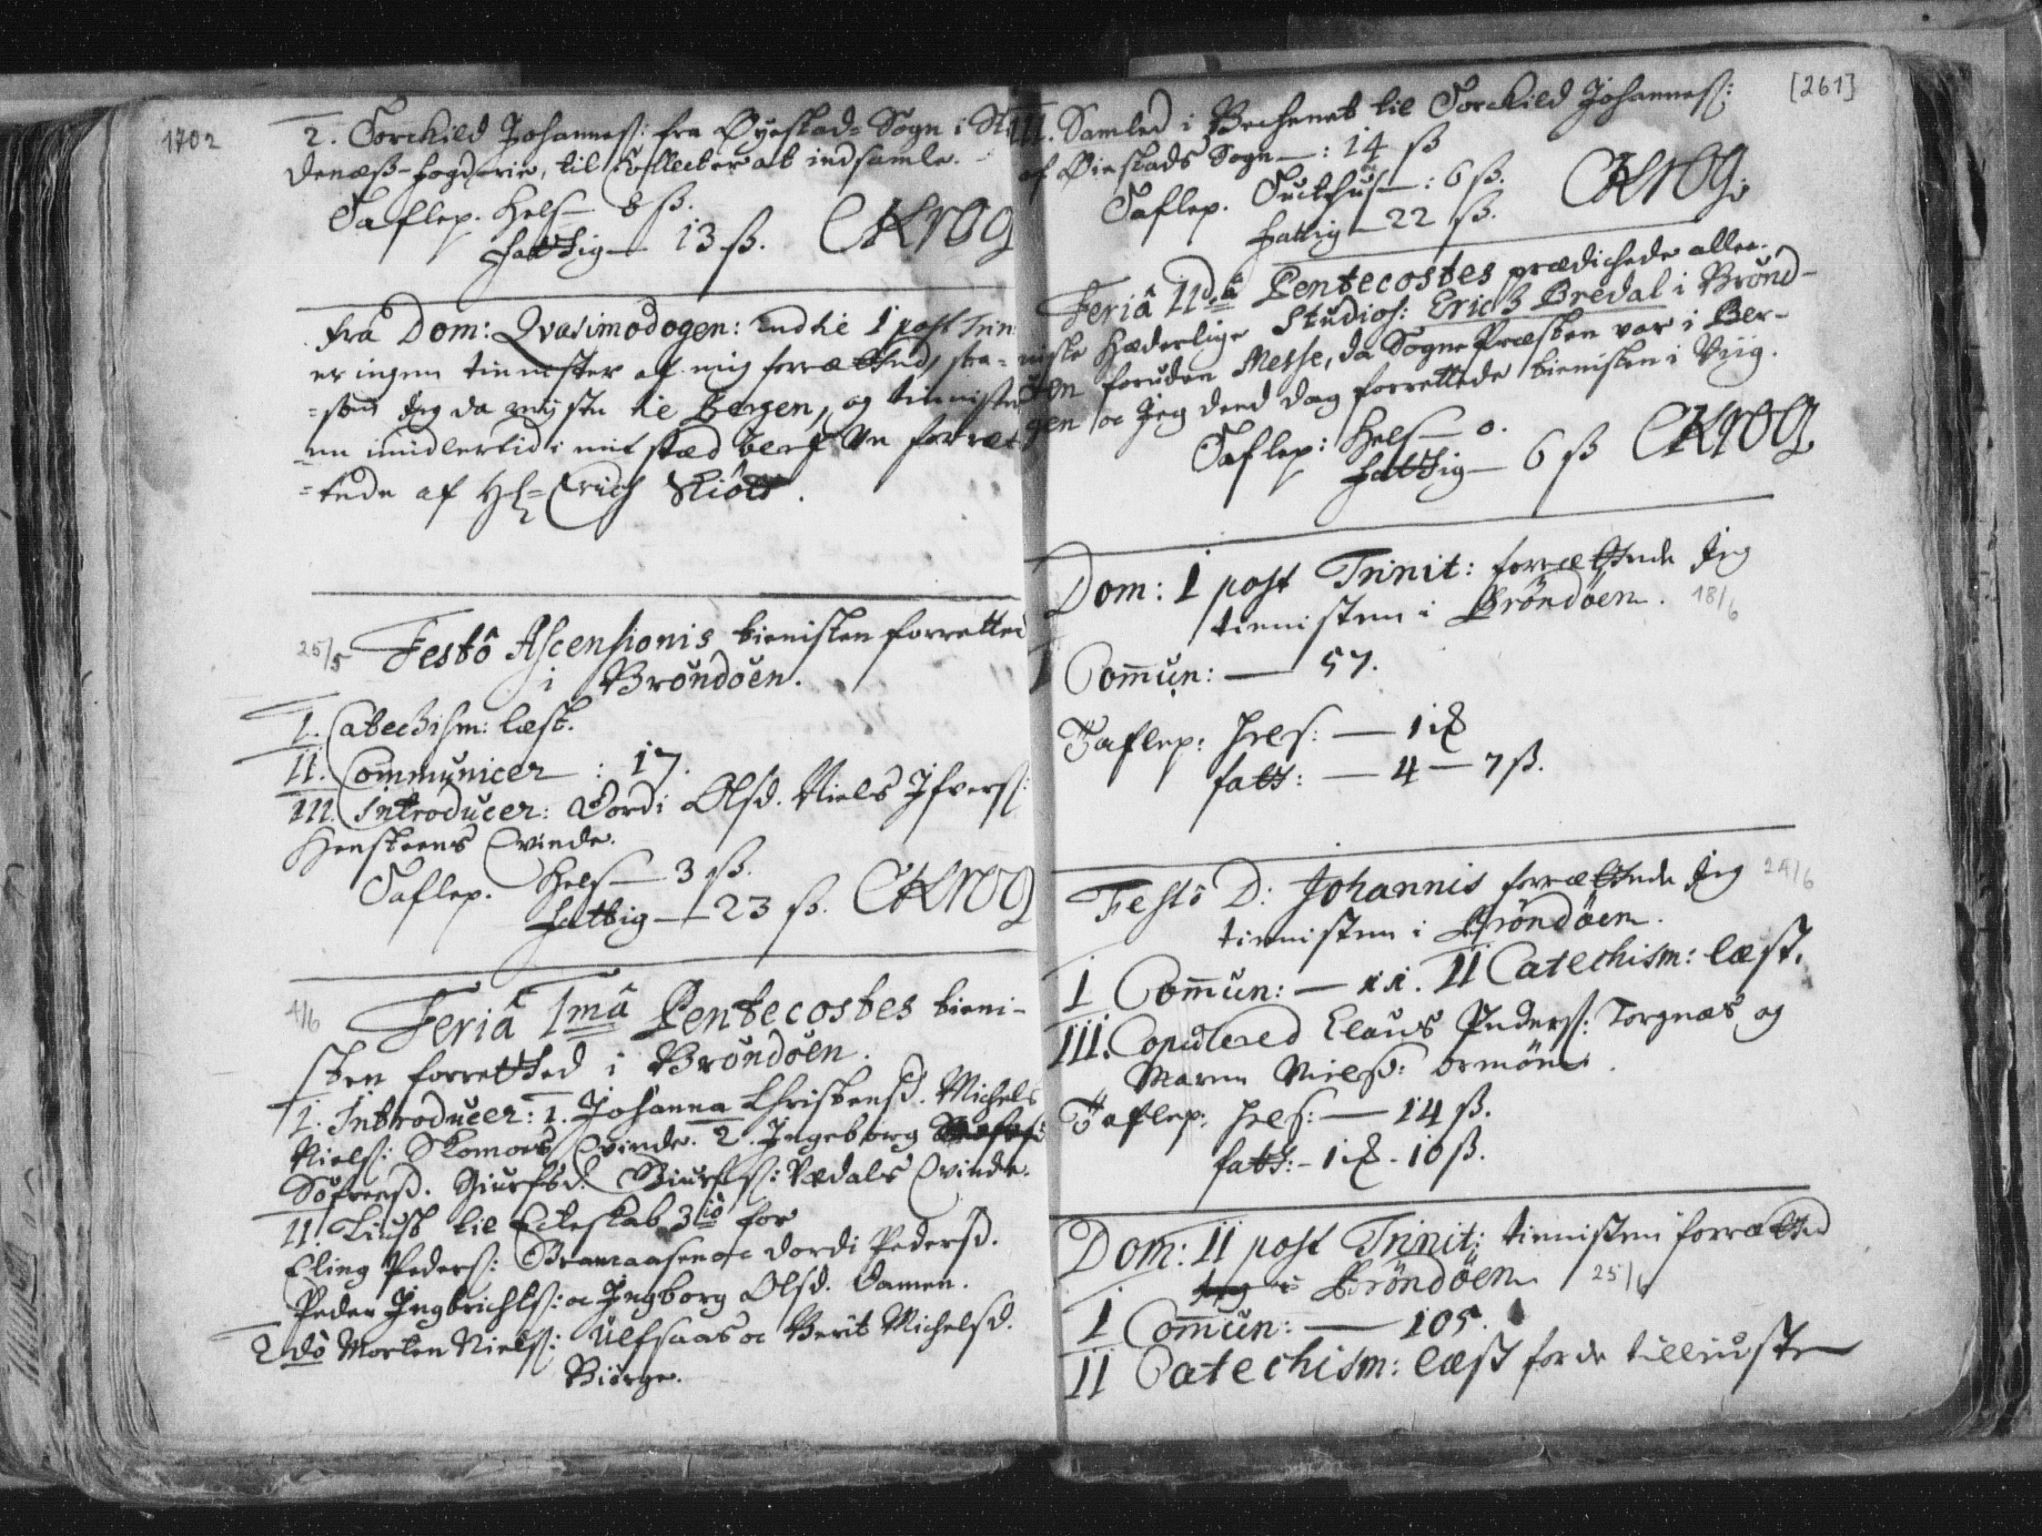 1702
2. Torchild Johanness: fra Øyestad-Sogn i
denæss-fogderie, til Collecter at indsamle.
Taflep. Hels— 8 ß.
fattig— 13 ß. CKrog
fra Dom: Qvasimodogen: indtil 1 post Trin
er ingen tienister af mig forrættned,
som Jeg da reyste til Bergen, og tienister
ne imidlertid i mit stæd bleffne forræt
=tede af Hr= Erich
25/5 Festô Ascensionis tienisten forretted
i Brøndøen.
I. Catechism: læst.
II. Communicer : 17.
III. Introducer: Dordi Olsd. Niels Ifvers:
Hensteens Qvinde.
Taflep. Hels— 3 ß.
fattig— 23 ß. CKrog
4/6 Feriâ 1mâ Pentecostes tieni-
sten forretted i Brøndøen.
I. Introducer: 1. Johanna Christensd. Michels
Niels: Skomoes Qvinde. 2. Ingeborg
Sôfrensd. Siursd. Siurs: Vedals Qvinde.
II. Liust til Ecteskab 3iô for
Eling Peders: Bramaasen oc Dordi Pedersd.
Peder Ingbrichts: oc Ingborg Olsd. Damen.
2dô Morten Niels: Ulfsaas oc Berit Michelsd.
Biørge.
[261]
III. Samled i Bechenet til Torckild Johanness:
af Øiestads Sogn—: 14 ß
Taflep. Tuckthus—: 6 ß.
fattig— 22 ß. CKrog.
Feriâ IIdâ Pentecostes prædichede aller
Hæderlige Studios: Erich Bredal i Brønd-
foruden Messe, da Sogne Præsten var i Ber-
gen oc Jeg dend dag forrettede tienisten i Viig.
Taflep: Hels— 0.
fattig— 6 ß CKrog
Dom: I post Trinit: forrættnede Jeg
tienisten i Brøndøen. 18/6
I Com̄un:— 57.
Taflep: Hels:— 1
fatt:— 4— 7 ß.
Festô D: Johannis forrættnede Jeg 24/6
tienisten i Brøndøen.
I Com̄un:— 11. II Catechism: læst.
III. Copulered Claus Peders: Torgnæs og
Maren Nielsd: Ormøen.
Taflep: Hels:— 14 ß.
fatt:— 1 — 10 ß.
Dom: II post Trinit: tienisten forrætted
i Brøndøen 25/6
I Com̄un:— 105.
II Catechism: læst for de tilliuste